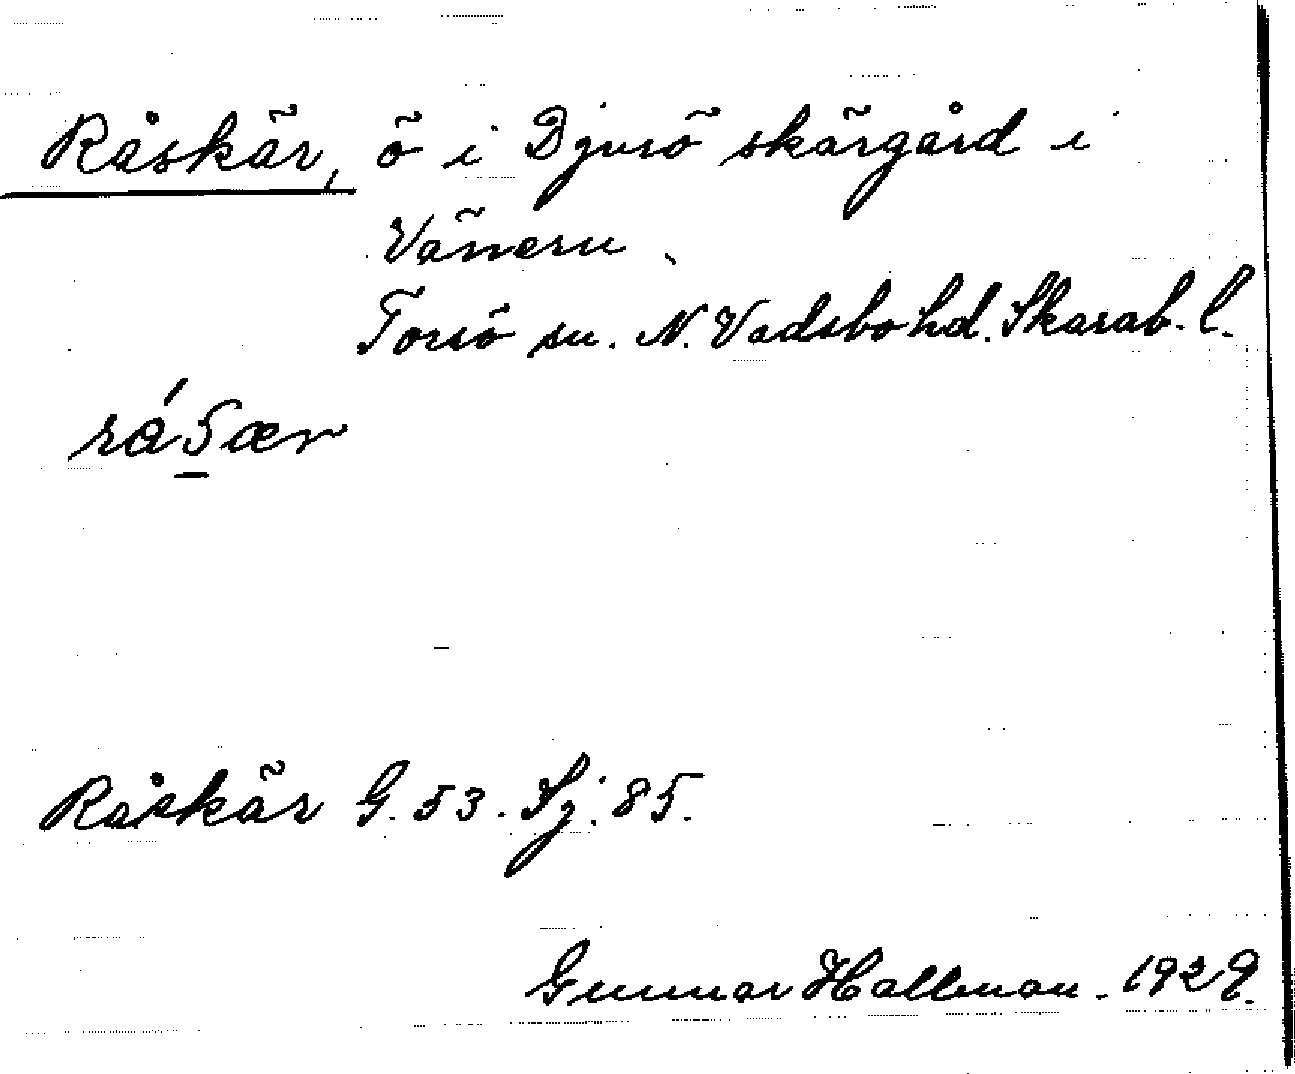 Råskär, ö i Djurö skärgård i
Vänern.
Torsö sn. N. Vadsbo hd. Skarab. l.
Råskär G. 53. Sj. 85.
Gunnar Hallman. 1929.